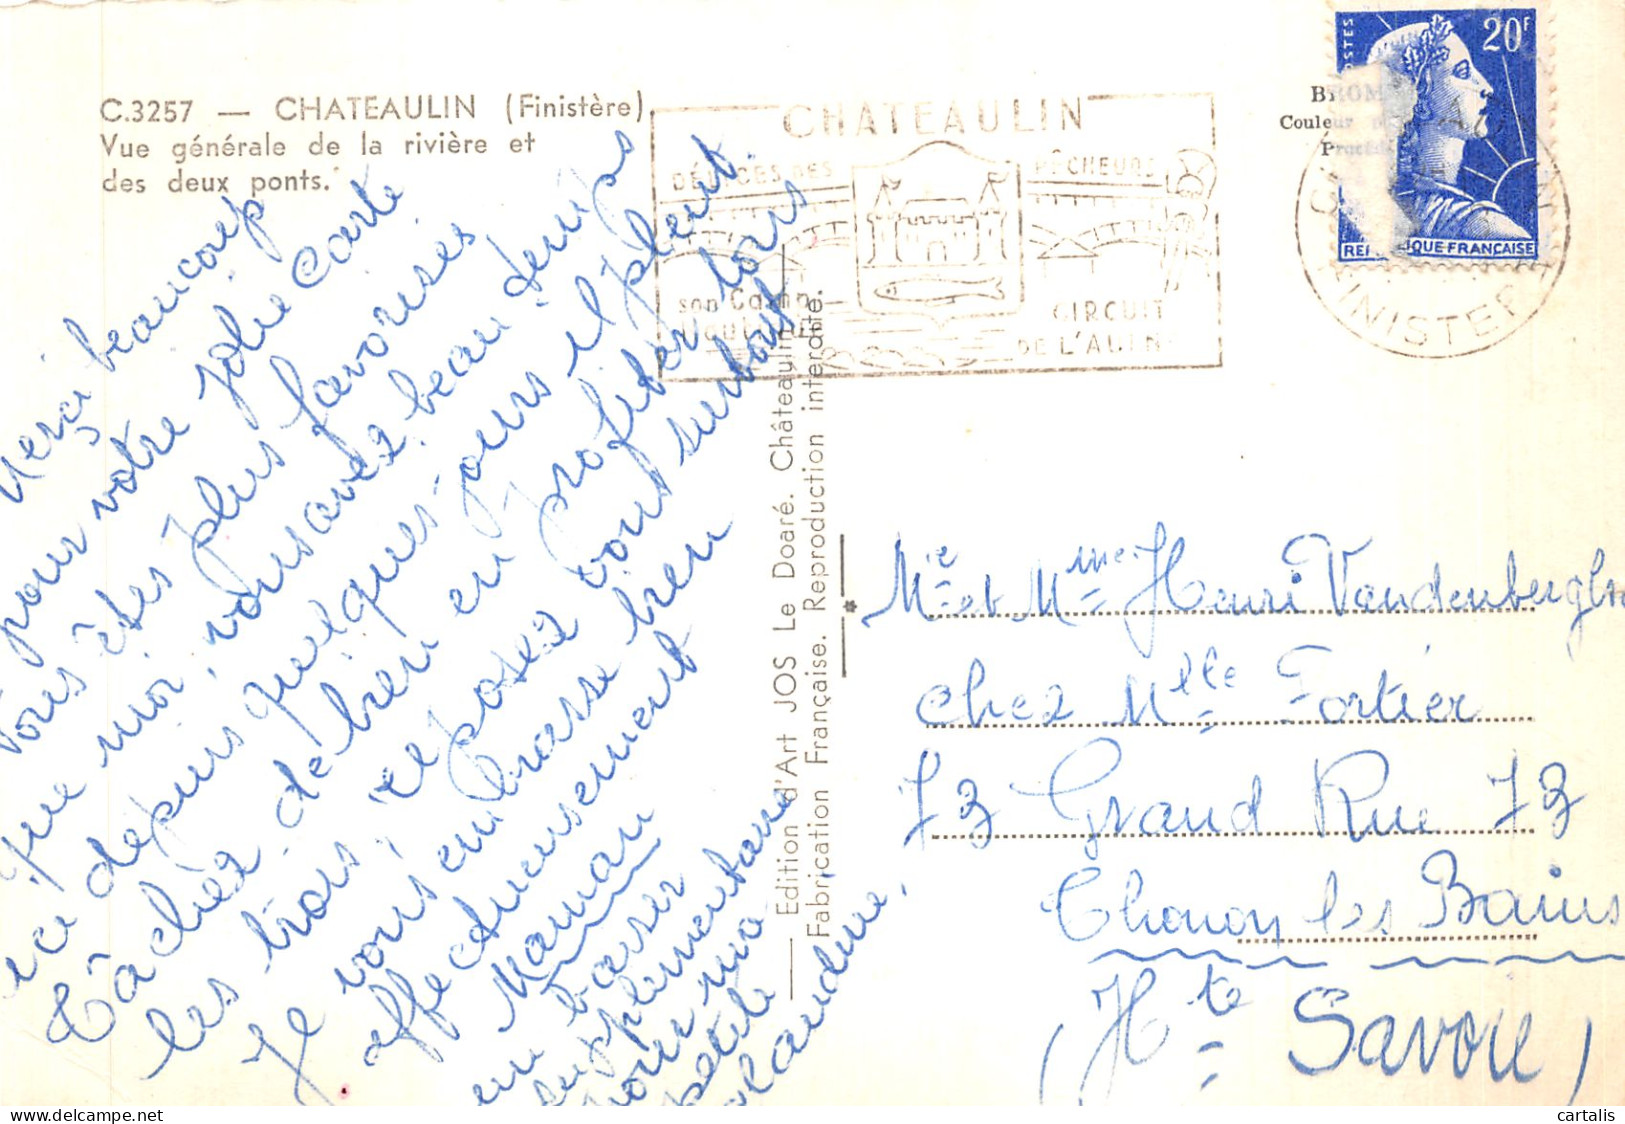 C.3257 — CHATEAULIN (Finistère)
Vue générale de la rivière et
des deux ponts.
Merci beaucoup
pour votre jolie carte
Vous êtes plus favorisés
que moi, vous avez beau temps
ici depuis quelques jours il pleut
Tâchez de bien en profiter tous
les trois, reposez vous surtout
Je vous embrasse bien
affectueusement
Maman
un baiser
supplémentaire
pour ma
petite
Claudine.
Edition d'Art JOS Le Doaré. Châteaulin.
Fabrication Française. Reproduction interdite.
CHATEAULIN
DÉLICES DES PÊCHEURS
son Camp
CIRCUIT
DE L'AULN
20F
POSTES
REPUBLIQUE FRANCAISE
BROM
Couleur
Procédé
FINISTERE
Mr et Mme Henri Vandenberghe
chez Mlle Fortier
73 Grand Rue 73
Thonon les Bains
(Hte Savoie)
cartalis